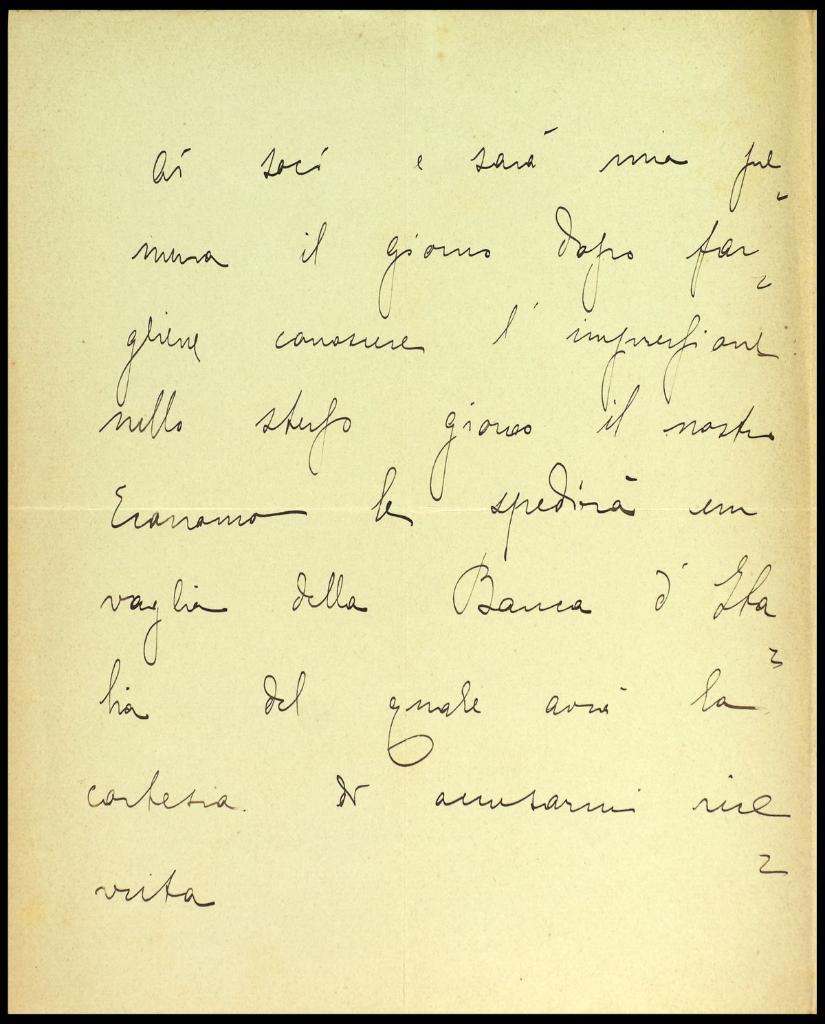 ai soci e sarà mia pre=
mura il giorno dopo far=
gliene conoscere l'impressione
nello stesso giorno il nostro
Economo le spedirà un
vaglia della Banca d'Ita=
lia del quale avrà la
cortesia di accusarmi rice=
vuta